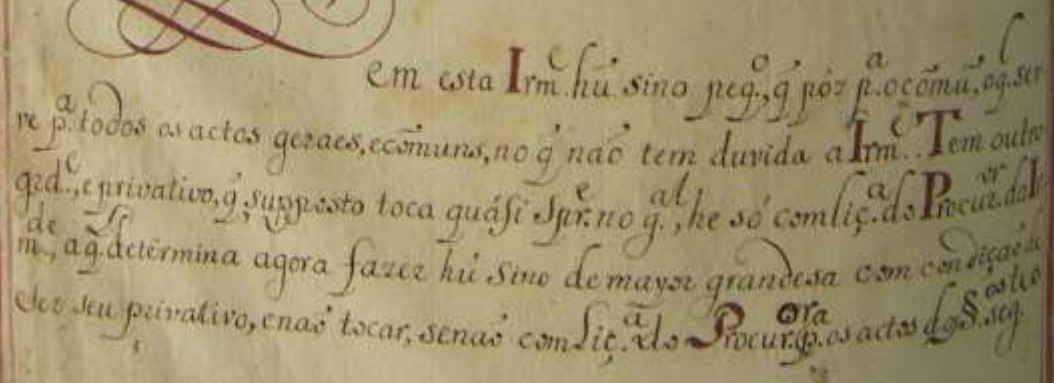 em esta Irm.^e hũ sino peq.^o, q̃ pôz p.^a o cõmũ, o q.^l ser
ve p.^a todos os actos geraes, e cõmuns, no q̃ naõ tem duvida a Irm.^e. Tem outro
grd.^e, e privativo, q̃ supposto toca quási Spr.^e no g.^al, he só com liç.^a do Procur.^or da I
m.^de, a q.^l determina agora fazer hũ sino de mayor grandesa com condiçaõ de
Ser seu privativo, e naõ tocar, senaõ com Liç.^a do Procur.^or p.^a os actos do § seg.